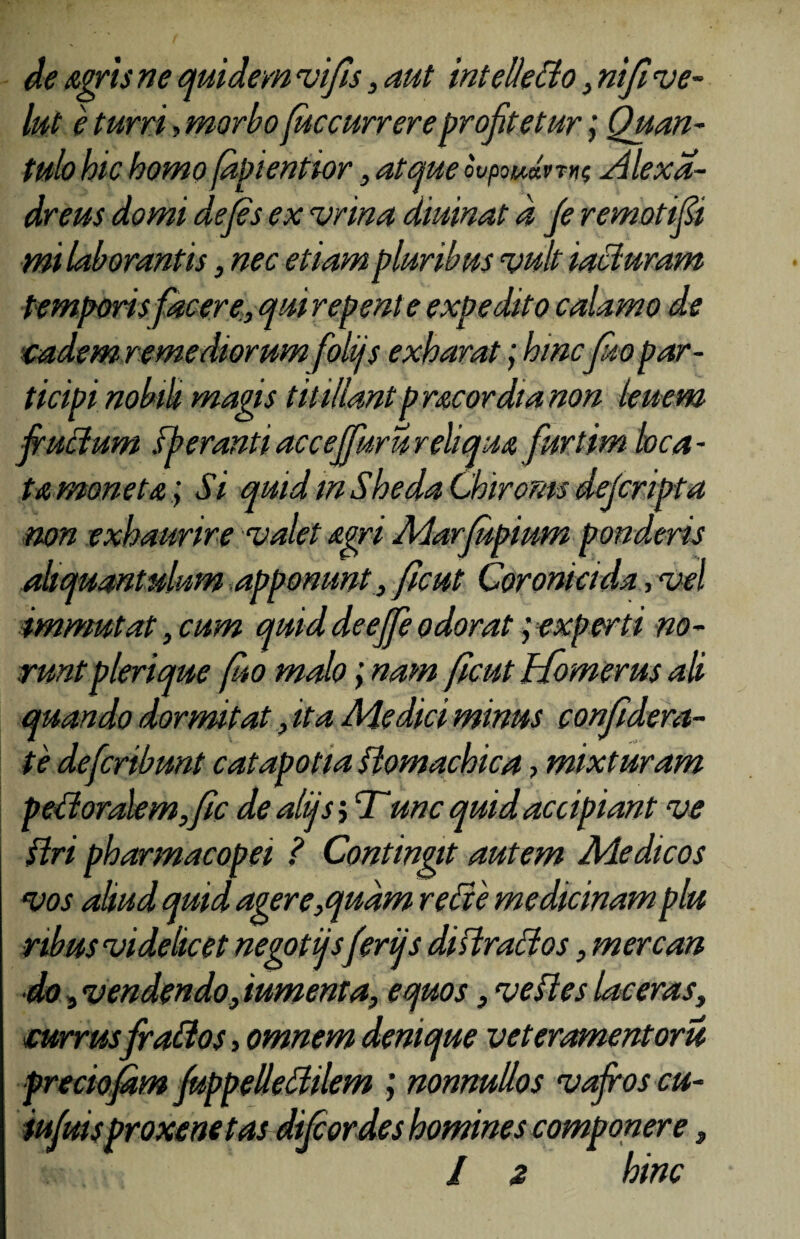 de ægris ne quidem viſis, aut intellecto, niſi ve-
lut è turri, morbo ſuccurrere profitetur; Quan-
tulo hic homo ſapientior, atque ὀυρομάντης Alexā-
dreus domi deſes ex vrina diuinat à ſe remotiſſi
mi laborantis, nec etiam pluribus vult iacturam
temporis facere, qui repente expedito calamo de
eadem remediorum folijs exharat; hinc ſuo par-
ticipi nobili magis titillant præcordia non leuem
fructum ſperanti acceſſurū reliquæ furtim loca-
tæ monetæ; Si quid in Sheda Chironis deſcripta
non exhaurire valet ægri Marſupium ponderis
aliquantulum apponunt, ſicut Coronicida, vel
immutat, cum quid deeſſe odorat; experti no-
runt plerique ſuo malo; nam ſicut Homerus ali
quando dormitat, ita Medici minus conſidera-
tè deſcribunt catapotia ſtomachica, mixturam
pectoralem, ſic de alijs; Tunc quid accipiant ve
ſtri pharmacopei? Contingit autem Medicos
vos aliud quid agere, quàm rectè medicinam plu
ribus videlicet negotijs ſerijs diſtractos, mercan
do, vendendo, iumenta, equos, veſtes laceras,
currus fractos, omnem denique veteramentorū
precioſam ſuppellectilem; nonnullos vafros cu-
iuſuis proxenetas diſcordes homines componere,
I 2 hinc